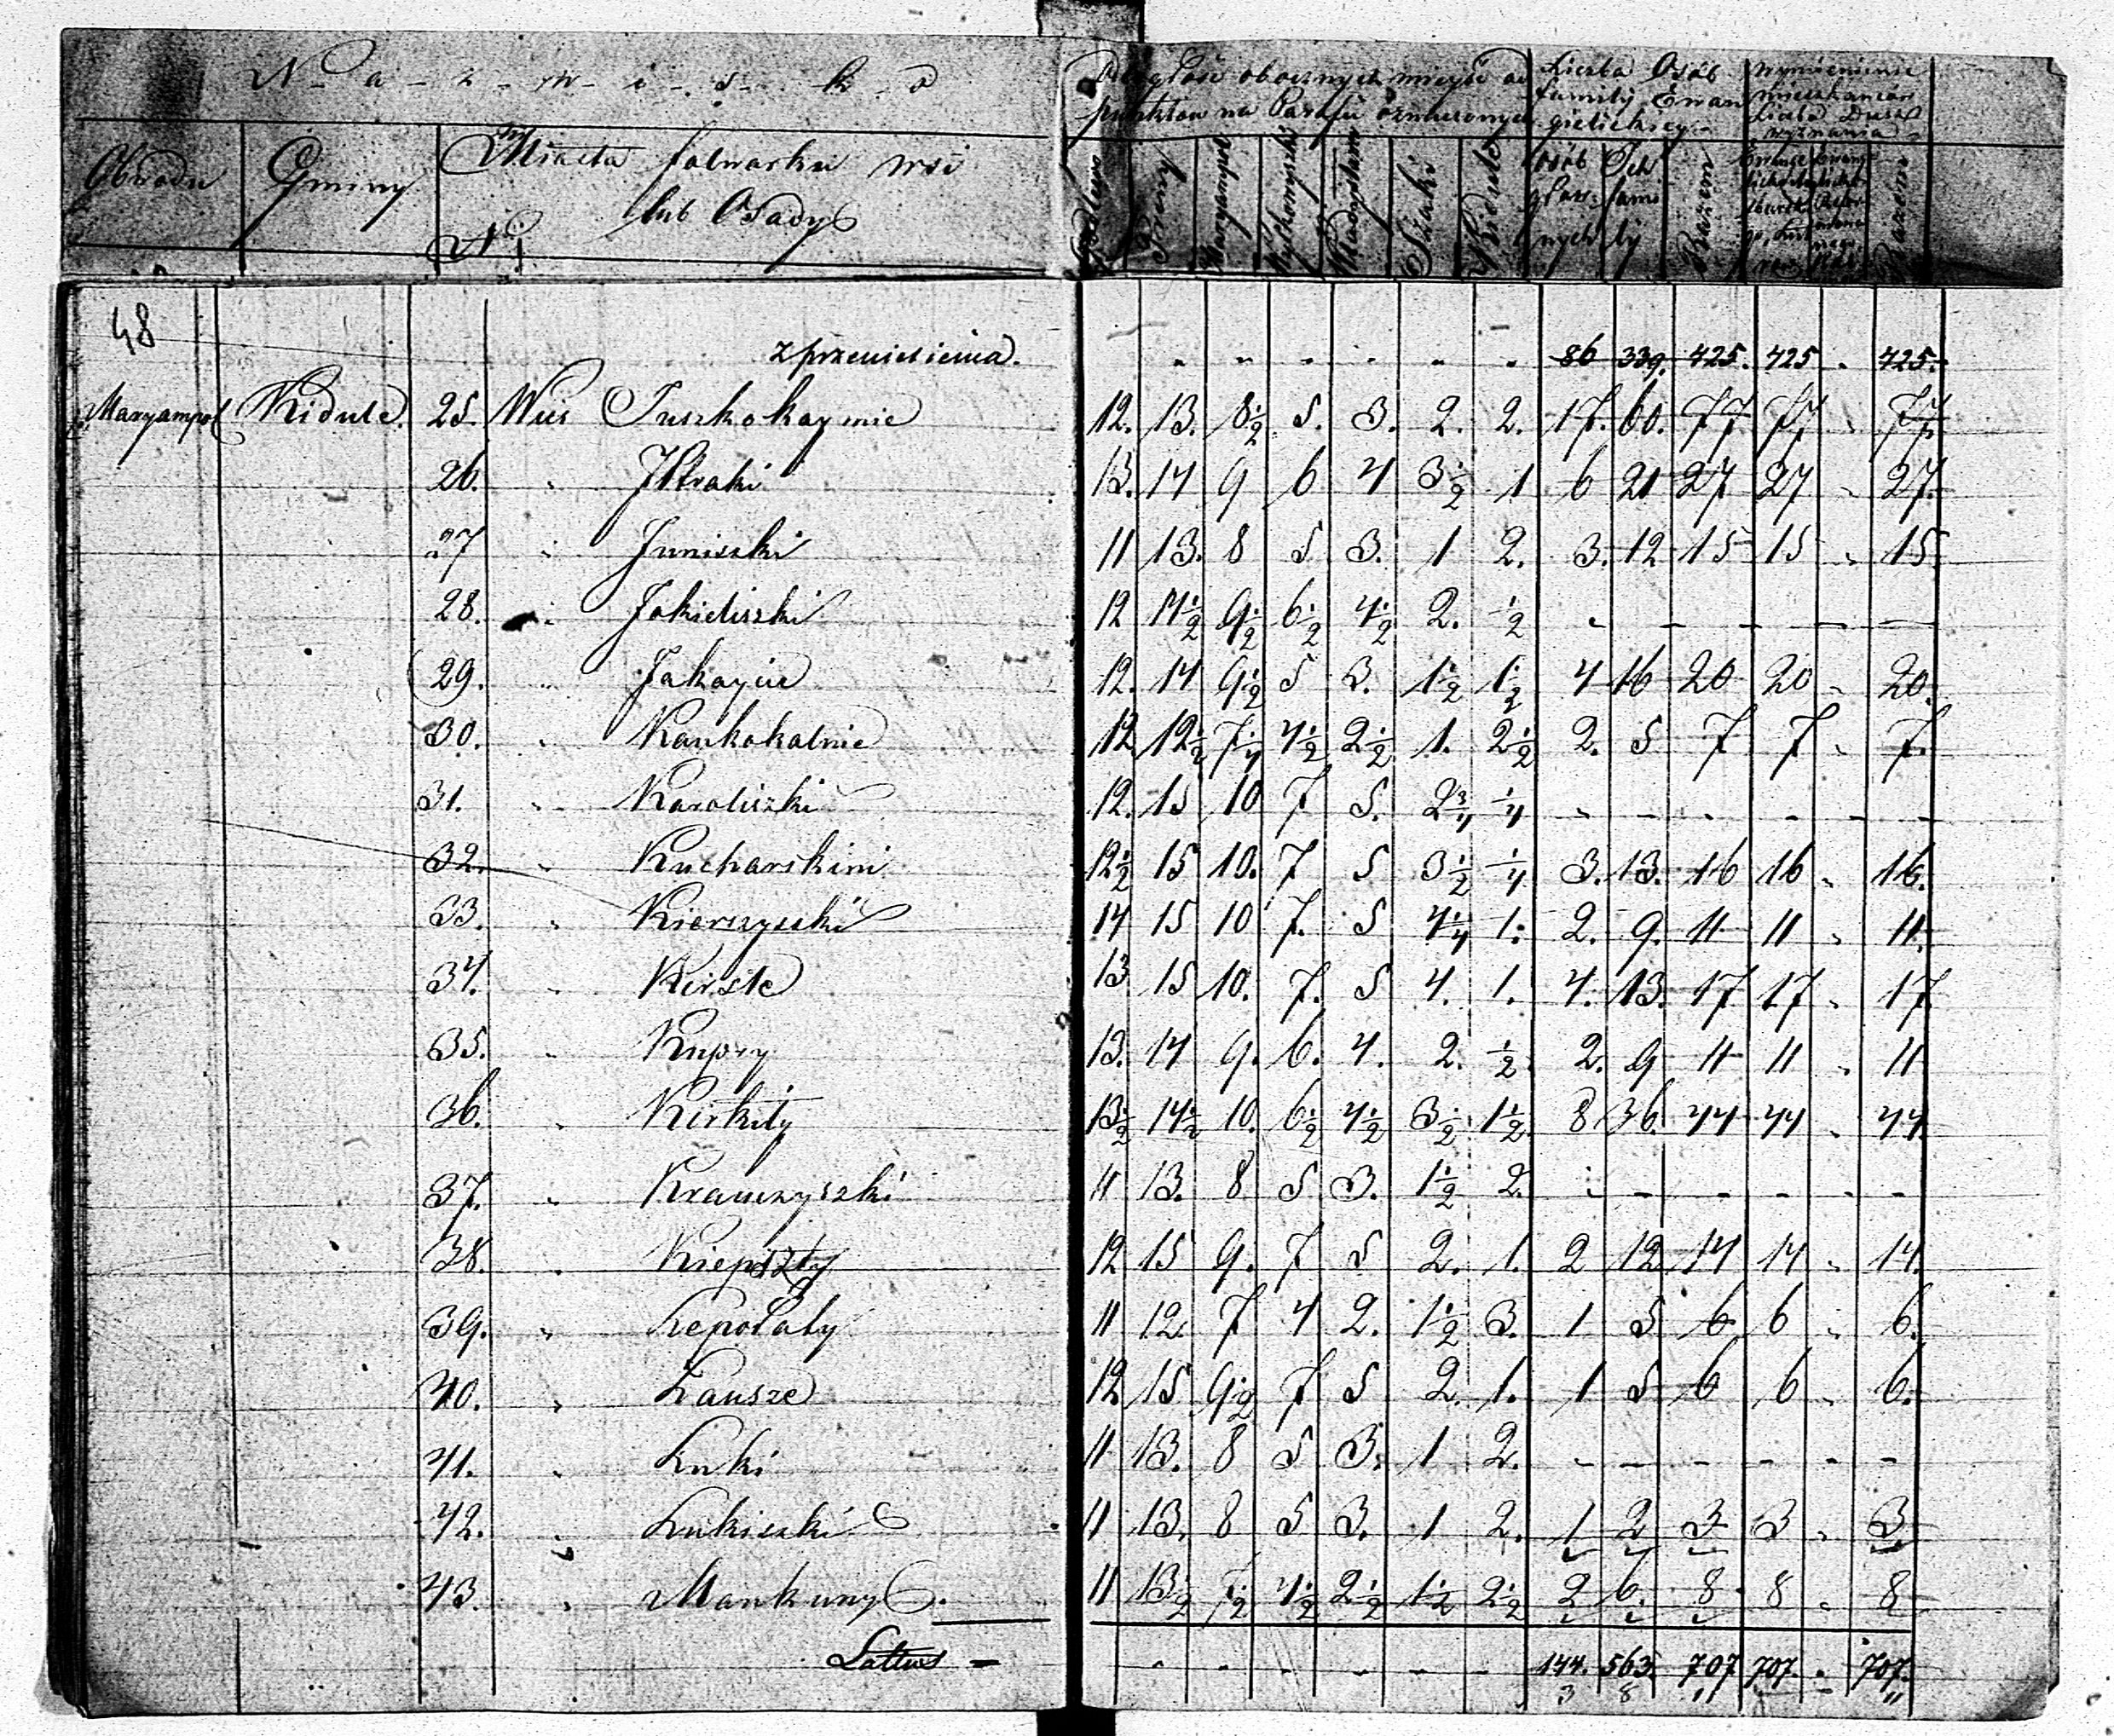 N a z w i s k o
Obwodu Gminy Miasta folwarku wsi
lub Osady
N
Odległość obocznych mieysc od
punktów na Parafii oznaczonych
Liczba Osób
familij Ewan
gielickiey
Wymienienie
mieszkańców
Liczba Dusz
wyznania
Preny Maryampol Szaki Kidule
Osób głow: nych Ich fami lij Razem Razem
48
z przeniesienia. " " " " " " 86 339. 425. 425 " 425.
Maryampol Kidule. 25. Wieś Juszkokaymie 12. 13. 8½ 5. 3. 2. 2. 17. 60. 77 77 " 77.
26. " 13. 14 9 6 4 3½ 1 6 21 27 27 " 27.
27 " Juniszki 11 13. 8 5 3. 1 2. 3. 12 15 15 " 15.
28. " Jokieliszki 12 14½ 9½ 6½ 4½ 2. ½ - - - - - -
29. " Jakaycie 12. 14 9½ 5 3. 1½ 1½ 4 16 20 20 " 20.
30. " Kaukokalnie 12 12½ 7¼ 4½ 2½ 1. 2½ 2. 5 7 7 " 7.
31. " Karoliszki 12. 15 10 7 5. 2¾ ¼ - - - - - -
32. " Kucharskini 12½ 15 10. 7 5 3½ ¼ 3. 13. 16 16 " 16.
33. " Kierczyszki 14 15 10 7. 5 4¼ 1. 2. 9. 11 11 " 11.
34. " Kirste 13 15 10. 7. 5 4. 1. 4. 13. 17 17 " 17.
35. " Kupry 13. 14 9. 6. 4. 2. ½ 2. 9 11 11 " 11
36. " Kirkiły 13½ 14½ 10. 6½ 4½ 3½ 1½ 8 36. 44 44 " 44.
37. " Krauczyszki 11 13. 8 5 3. 1½ 2. - - - - - -
38. " Kiepszty 12 15 9. 7 5 2. 1. 2 12 14 14 " 14.
39. " Lepołaty 11 12. 7 4 2. 1½ 3. 1 5 6 6 " 6.
40. " Lausze 12. 15 9½ 7 5 2. 1. 1 5 6 6 " 6.
41. " Luki 11 13. 8 5 3. 1 2. - - - - - -
42. " Lukiszki 11 13. 8 5 3. 1 2. 1 2 3 3 " 3
43. " Mankuny. 11 13½ 7½ 4½ 2½ 1½ 2½ 2 6. 8 8 " 8
Lattus - - - - - - - 144. 563. 707 707. " 707.
3 8 11 11